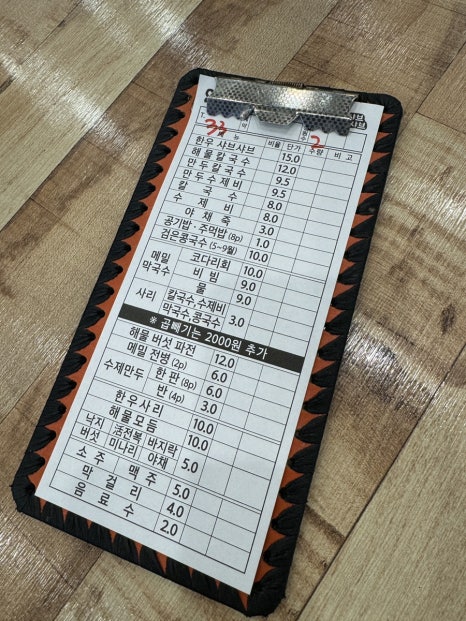 33
2
비율 단가 수량 비고
한우 샤브샤브 15.0
해물칼국수 12.0
만두칼국수 9.5
만두수제비 9.5
칼국수 8.0
수제비 8.0
야채죽 3.0
공기밥·주먹밥(8p) 1.0
검은콩국수(5~9월) 10.0
메밀 막국수 코다리회 10.0
비빔 9.0
물 9.0
사리 칼국수,수제비 막국수,콩국수 3.0
※ 곱빼기는 2000원 추가
해물 버섯 파전 12.0
메밀 전병(2p) 6.0
수제만두 한판(8p) 6.0
반(4p) 3.0
한우사리 10.0
해물모듬 10.0
낙지 활전복 바지락
버섯 미나리 야채 5.0
소주 맥주 5.0
막걸리 4.0
음료수 2.0